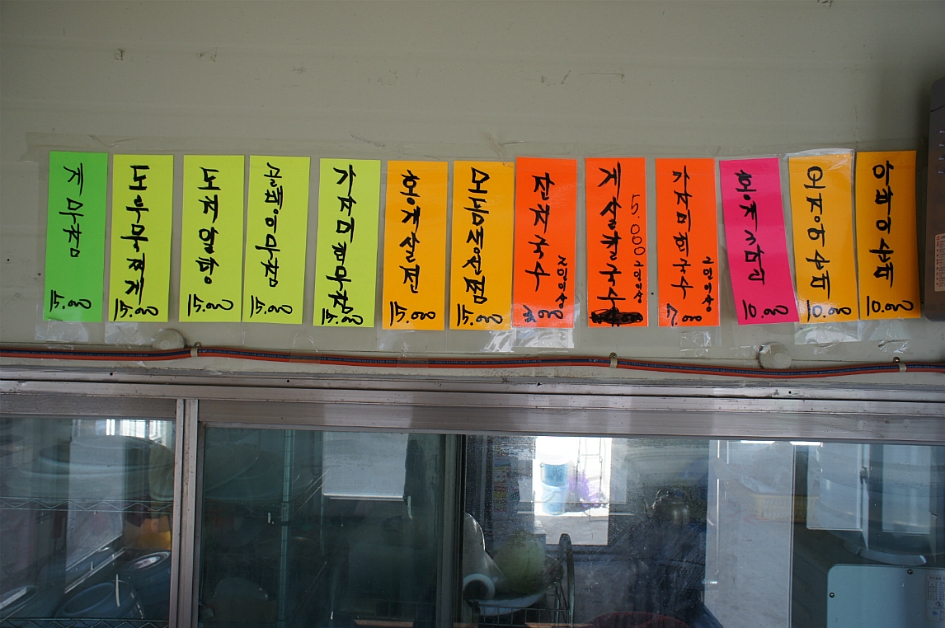 게무침
15.00
도루묵찌게
15.00
도치알탕
15.00
골뱅이무침
15.00
가자미회무침
15.00
홍게살찜
15.00
모듬생선찜
15.00
잔치국수
2인이상
게살칼국수
5.000
2인이상
가자미회국수
2인이상
7.00
홍게사리
10.00
오징어
10.00
10.00